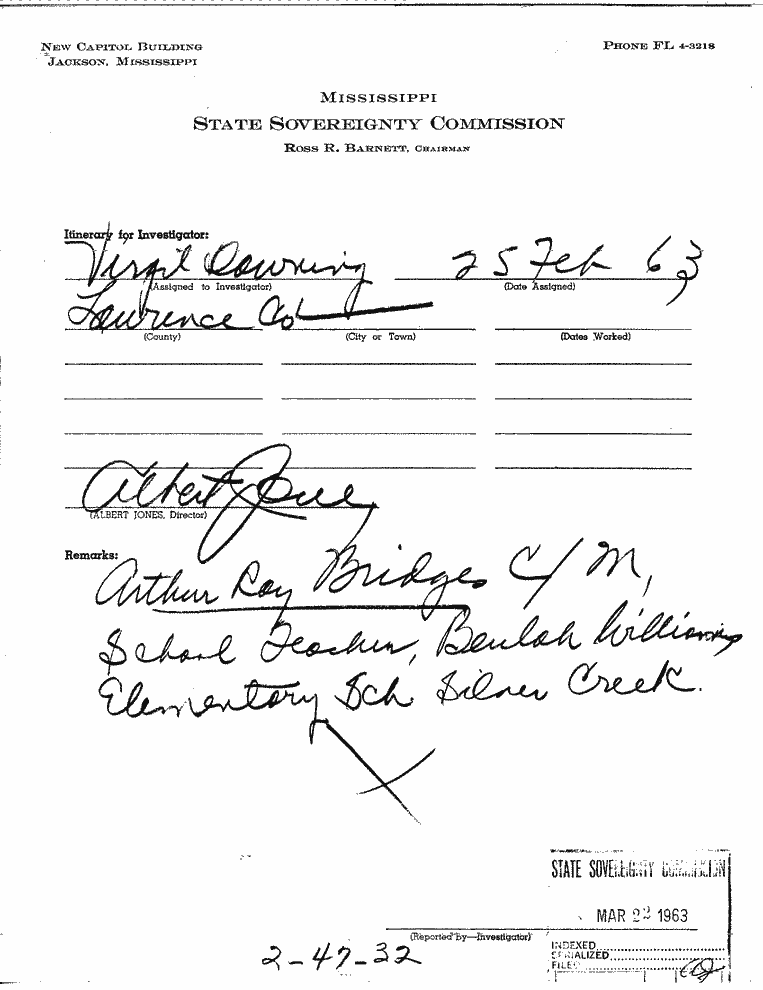 NEW CAPITOL BUILDING
JACKSON, MISSISSIPPI
PHONE FL 4-3218
MISSISSIPPI
STATE SOVEREIGNTY COMMISSION
ROSS R. BARNETT, CHAIRMAN
Itinerary for Investigator:
Virgil Downing 25 Feb 63
(Assigned to Investigator) (Date Assigned)
Lawrence Co
(County) (City or Town) (Dates Worked)
Albert Jones
(ALBERT JONES, Director)
Remarks:
Arthur Ray Bridges C/M,
School Teacher, Beulah Williams
Elementary Sch Silver Creek.
STATE SOVEREIGNTY COMMISSION
MAR 22 1963
(Reported by—Investigator)
INDEXED
SERIALIZED
FILED
2-47-32